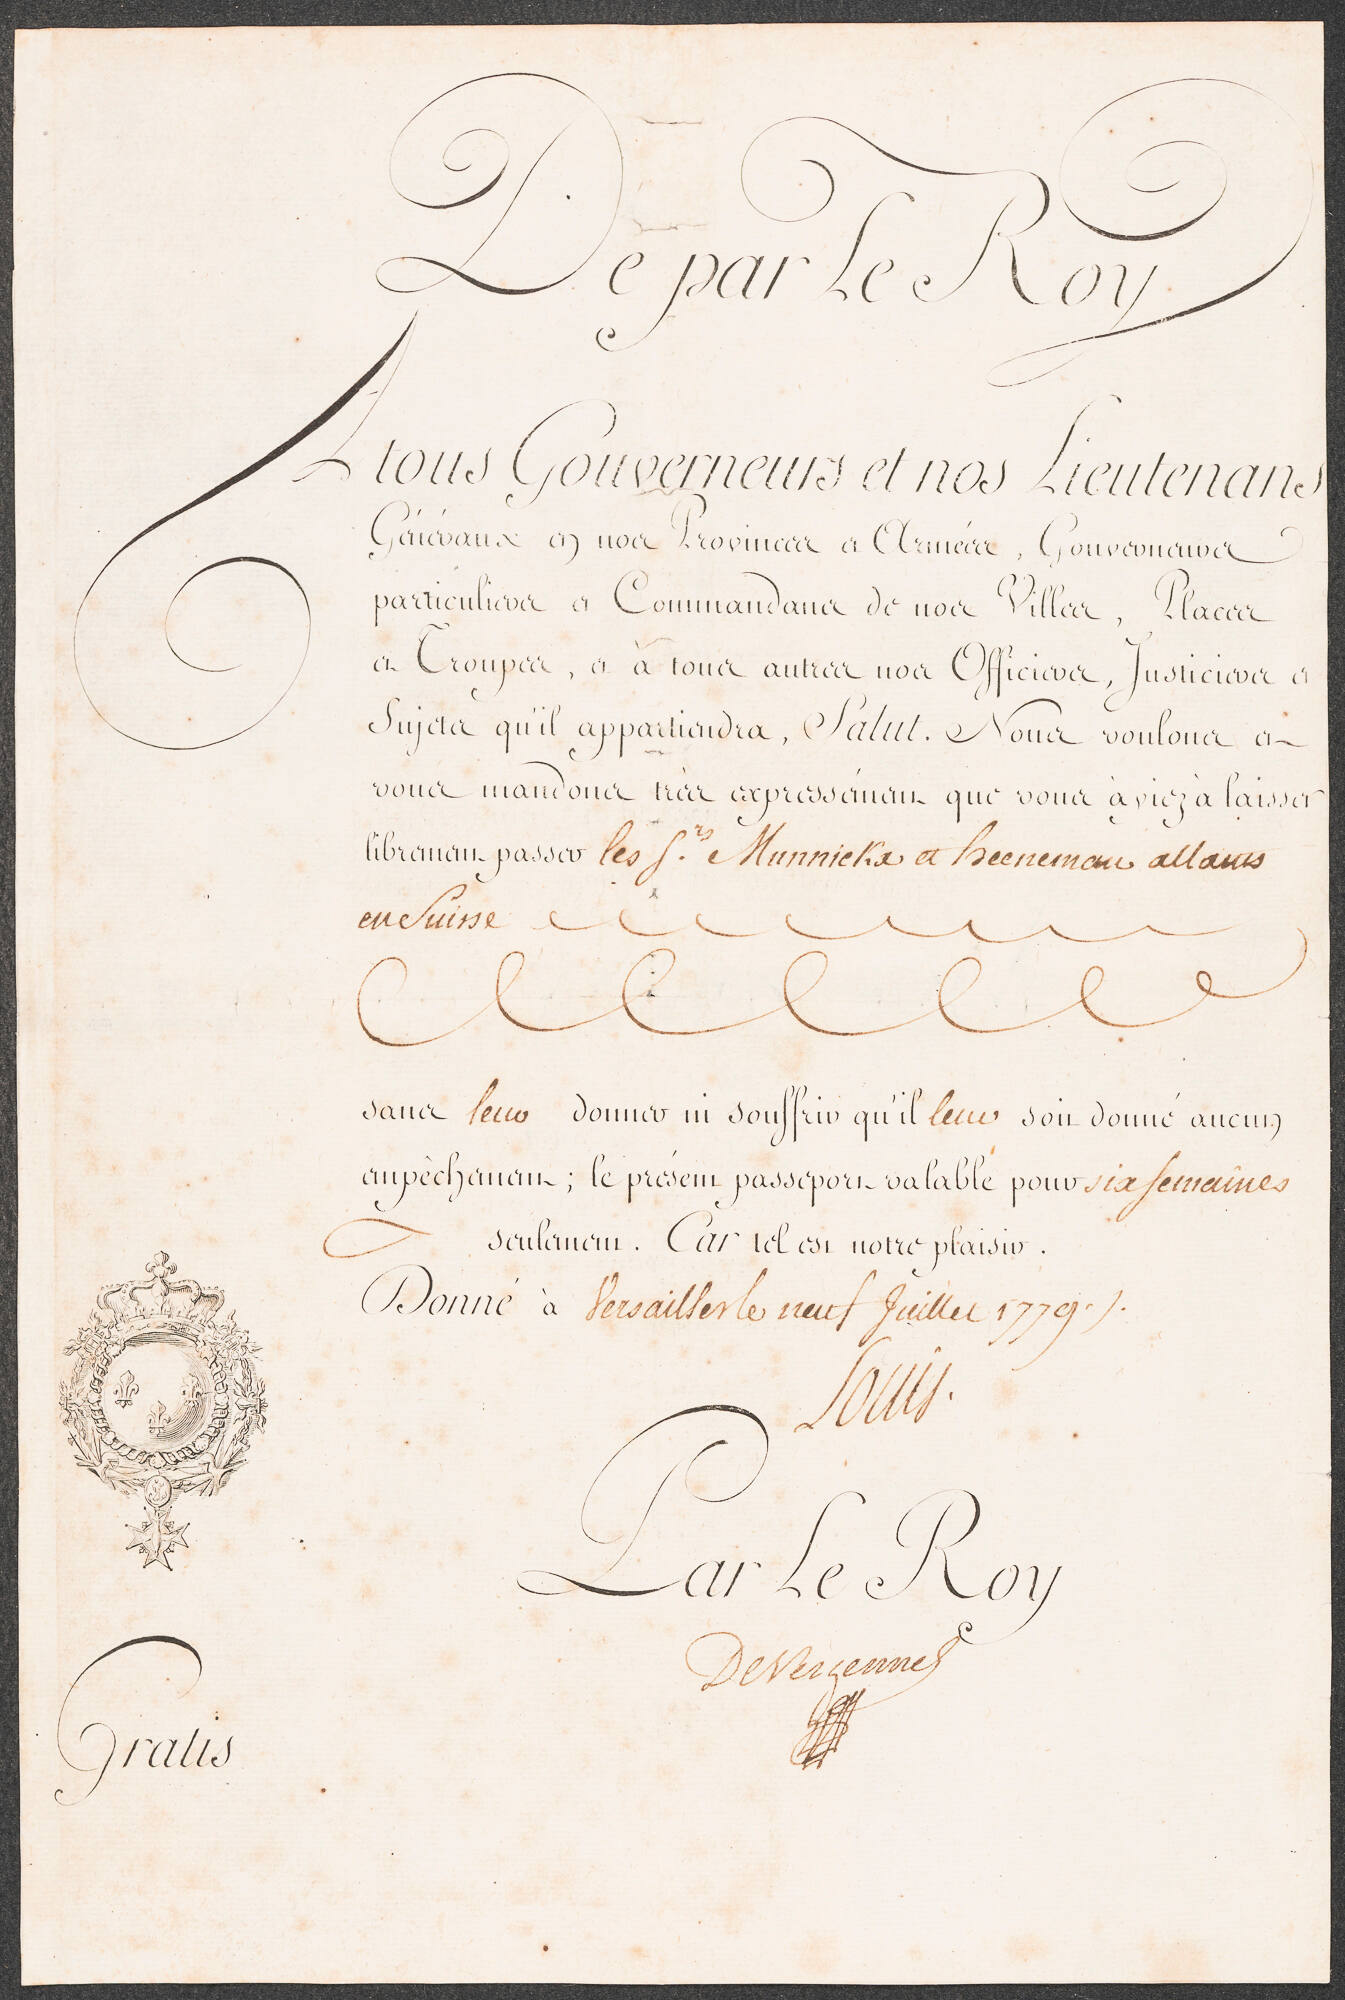 De par Le Roy
A tous Gouverneurs et nos Lieutenans
Généraux en nos Provinces et Armées, Gouverneurs
particuliers et Commandans de nos Villes, Places
et Troupes, et à tous autres nos Officiers, Justiciers et
Sujets qu'il appartiendra, Salut. Nous voulons et
vous mandons très expressément que vous àyiez à laisser
librement passer les Srs. Munnicks et heeneman allants
en Suisse
sans leur donner ni souffrir qu'il leur soit donné aucun
empêchement; le présent passeport valable pour six semaines
seulement. Car tel est notre plaisir.
Donné à Versailles le neuf Juillet 1779.
Louis.
Par Le Roy
De Vergennes
Gratis